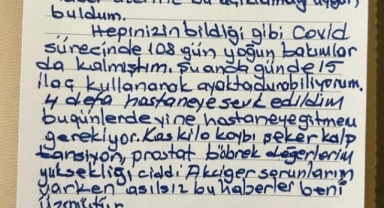 bu açıklamayı uygun
buldum.
Hepinizin bildiği gibi Covid
sürecinde 108 gün yoğun bakımlar
da kalmıştım. Şu anda günde 15
ilaç kullanarak ayakta durabiliyorum.
4 defa hastaneye sevk edildim
bugünlerde yine hastaneye gitmem
gerekiyor. Kas kilo kaybı şeker kalp
tansiyon, prostat böbrek değerlerim
yüksekliği ciddi Akciğer sorunlarım
varken asılsız bu haberler beni
üzmüştür